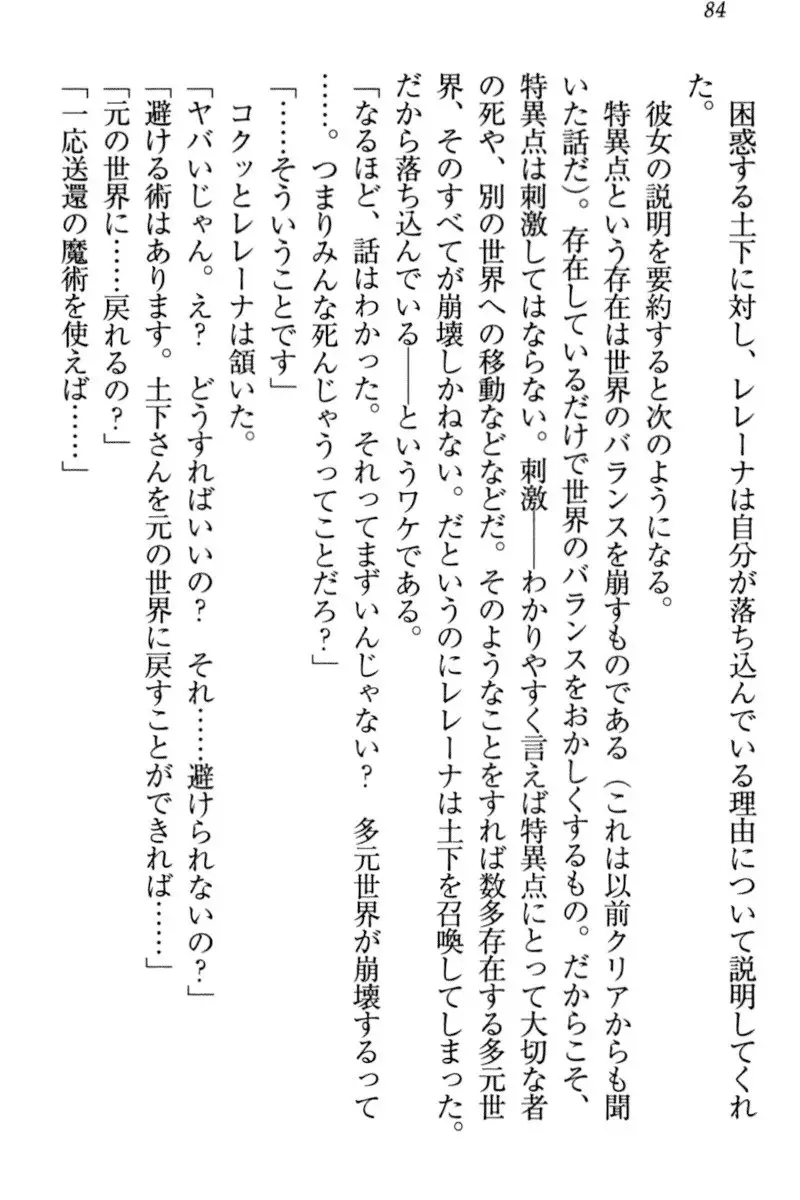 84
困惑する土下に対し、レレーナは自分が落ち込んでいる理由について説明してくれ
た。
彼女の説明を要約すると次のようになる。
特異点という存在は世界のバランスを崩すものである（これは以前クリアからも聞
いた話だ）。存在しているだけで世界のバランスをおかしくするもの。だからこそ、
特異点は刺激してはならない。刺激――わかりやすく言えば特異点にとって大切な者
の死や、別の世界への移動などなどだ。そのようなことをすれば数多存在する多元世
界、そのすべてが崩壊しかねない。だというのにレレーナは土下を召喚してしまった。
だから落ち込んでいる――というワケである。
「なるほど、話はわかった。それってまずいんじゃない？　多元世界が崩壊するって
……。つまりみんな死んじゃうってことだろ？」
「……そういうことです」
コクッとレレーナは頷いた。
「ヤバいじゃん。え？　どうすればいいの？　それ……避けられないの？」
「避ける術はあります。土下さんを元の世界に戻すことができれば……」
「元の世界に……戻れるの？」
「一応送還の魔術を使えば……」